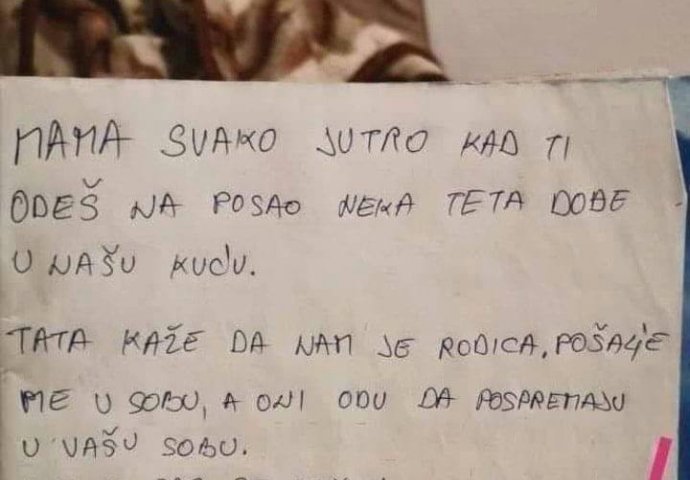 MAMA SVAKO JUTRO KAD TI
ODEŠ NA POSAO NEKA TETA DOĐE
U NAŠU KUĆU.
TATA KAŽE DA NAM JE RODICA, POŠALJE
ME U SOBU, A ONI ODU DA POSPREMAJU
U VAŠU SOBU.